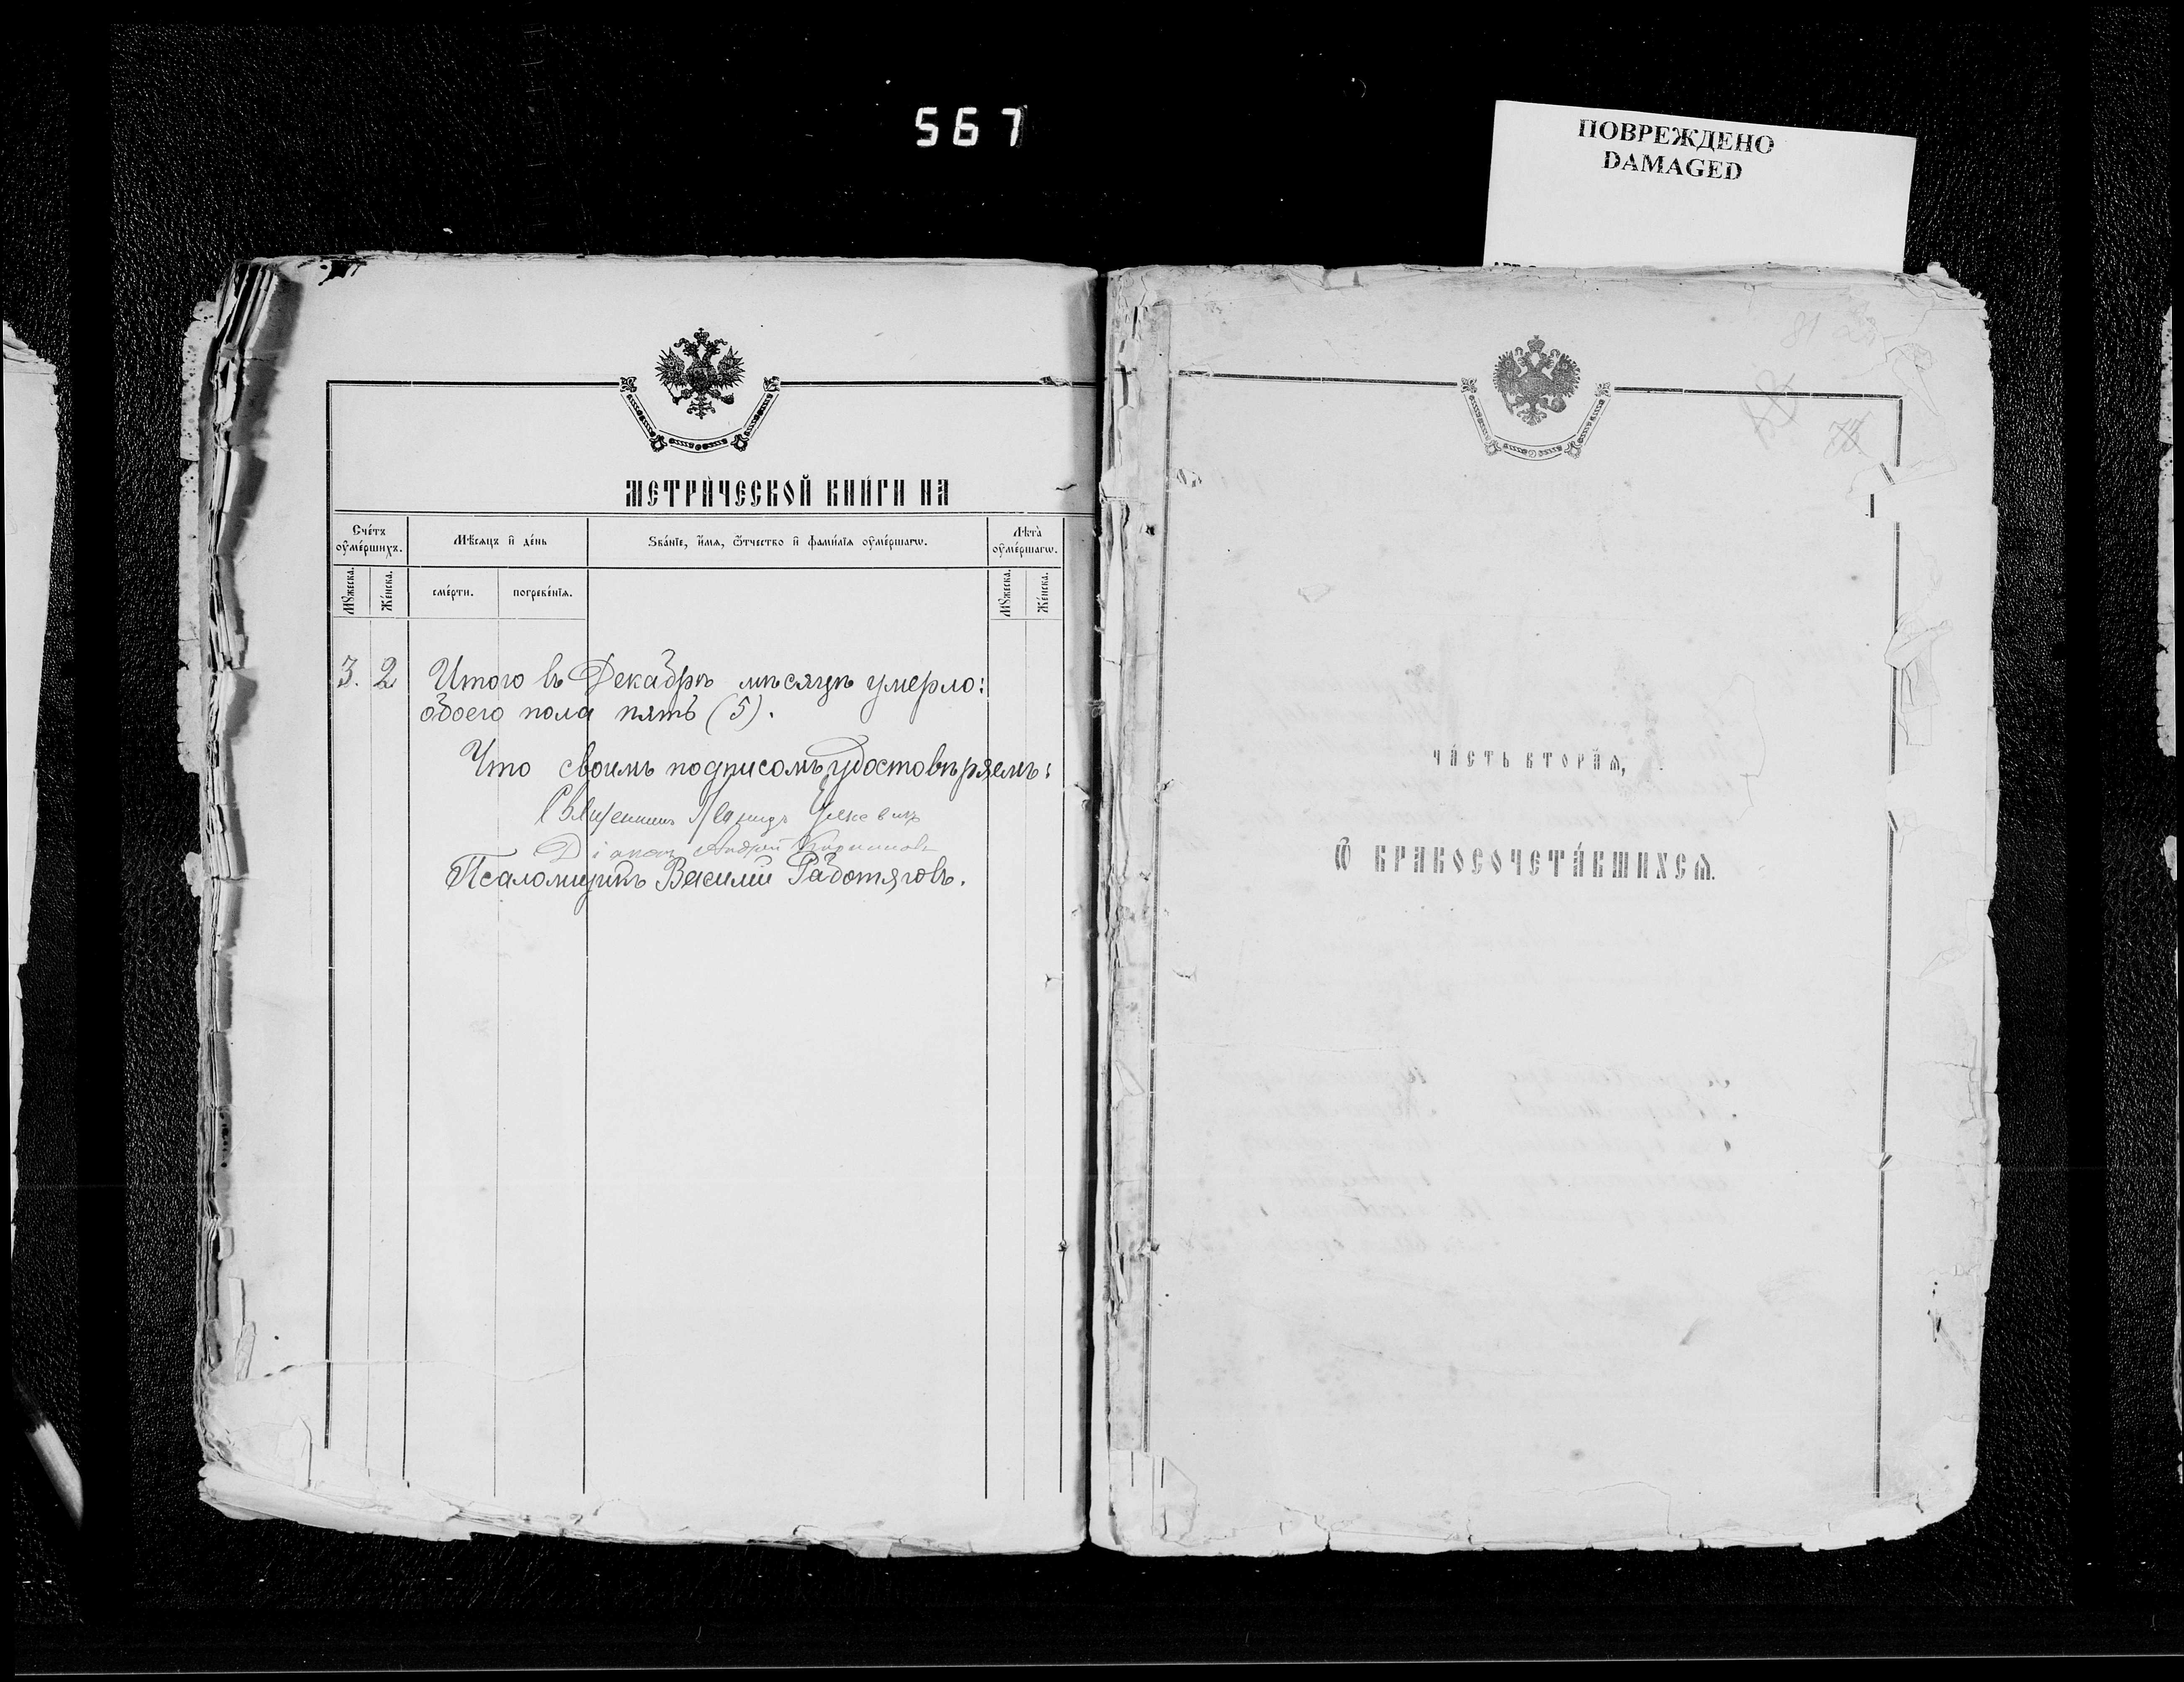 567
ПОВРЕЖДЕНО
DAMAGED
МЕТРИ́ЧЕСКОЙ КНИ́ГИ НА
Сче́тъ ᲂу҆ме́ршихъ.
Мѣ́сяцъ и҆ де́нь
Ѕва́нїе, и҆́мѧ, ѻ҆́тчество и҆ фами́лїѧ ᲂу҆ме́ршагѡ.
Лѣта̀ ᲂу҆ме́ршагѡ.
Мꙋ́жеска.
Же́нска.
сме́рти.
погребе́нїѧ.
Мꙋ́жеска.
Же́нска.
3. 2 Итого въ Декабрѣ мѣсяцѣ умерло:
обоего пола пять (5).
Что своимъ подписомъ удостовѣряемъ:
Священникъ
Діаконъ Андрей
Псаломщикъ Василій Работяговъ.
81
ЧА́СТЬ ВТОРА́Ѧ,
Ѡ҆ БРАКОСОЧЕТА́ВШИХСѦ.